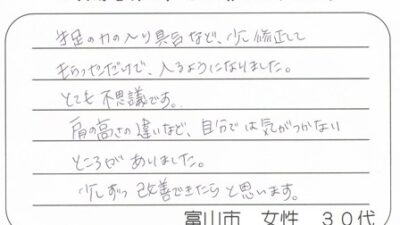 手足の力の入り具合など、少し修正して
もらっただけで、入るようになりました。
とても不思議です。
肩の高さの違いなど、自分では気がつかない
ところがありました。
少しずつ改善できたらと思います。
富山市 女性 30代